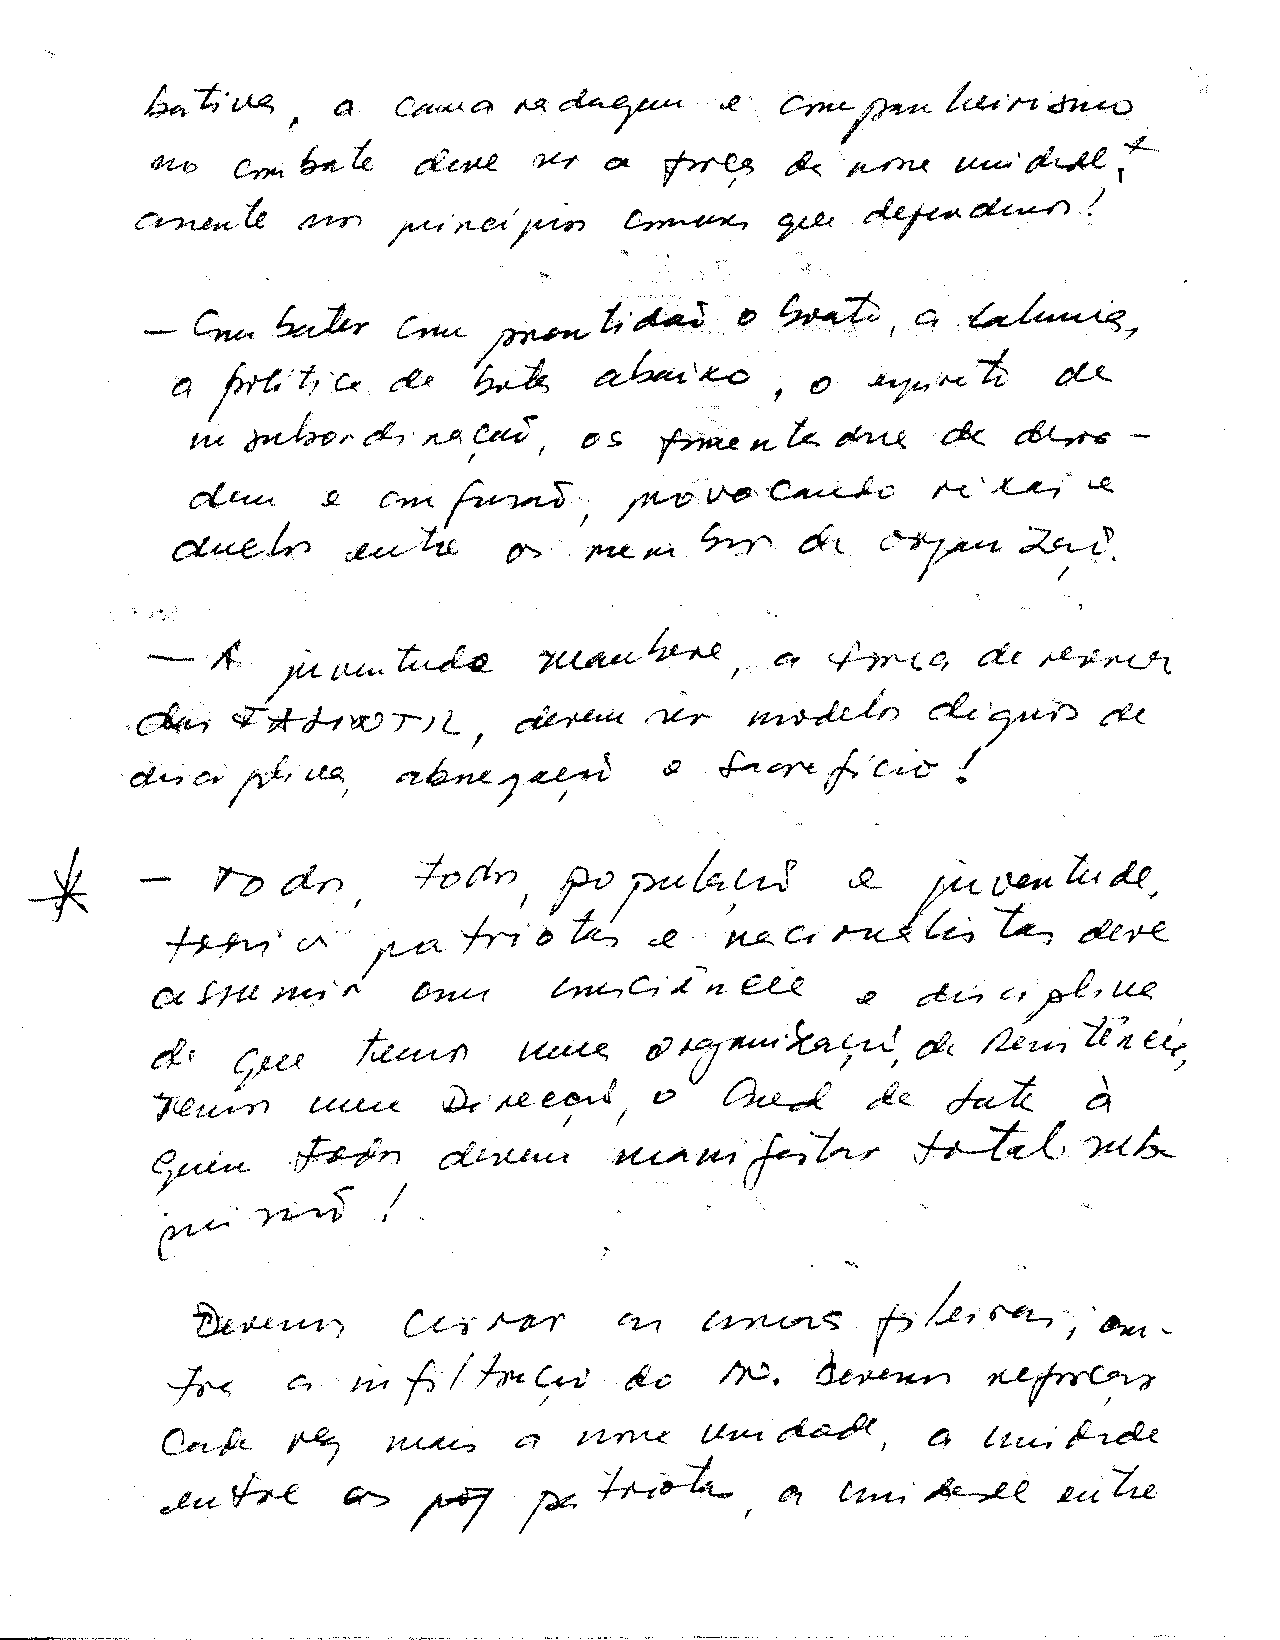 bativa, a camaradagem e companheirismo
no combate deve ser a força da nossa unidade, +
assente nos princípios comuns que defendemos!
— Combater com prontidaõ o boato, a calunia,
a politica de bota abaixo, o espirito de
insubordinaçaõ, os fomentadores de desor-
dem e confusaõ, provocando rixas e
duelos entre os membros da organizaçaõ.
— A juventude maubere, a força de reserva
das FALINTIL, devem ser modelos dignos de
disciplina, abnegaçaõ e sacrefício!
* — Todos, todos, populaçaõ e juventude,
patriotas e nacionalistas deve
assumir com consciência e disciplina
de que temos uma organizaçaõ de Resistência,
temos uma Direcçaõ, o Cmd da Luta à
quem todos devem manifestar total sub
missaõ!
Devemos cerrar as nossas fileiras, con-
tra a infiltraçaõ do In. Devemos reforçar
cada vez mais a nossa unidade, a unidade
entre os patriotas, a unidade entre